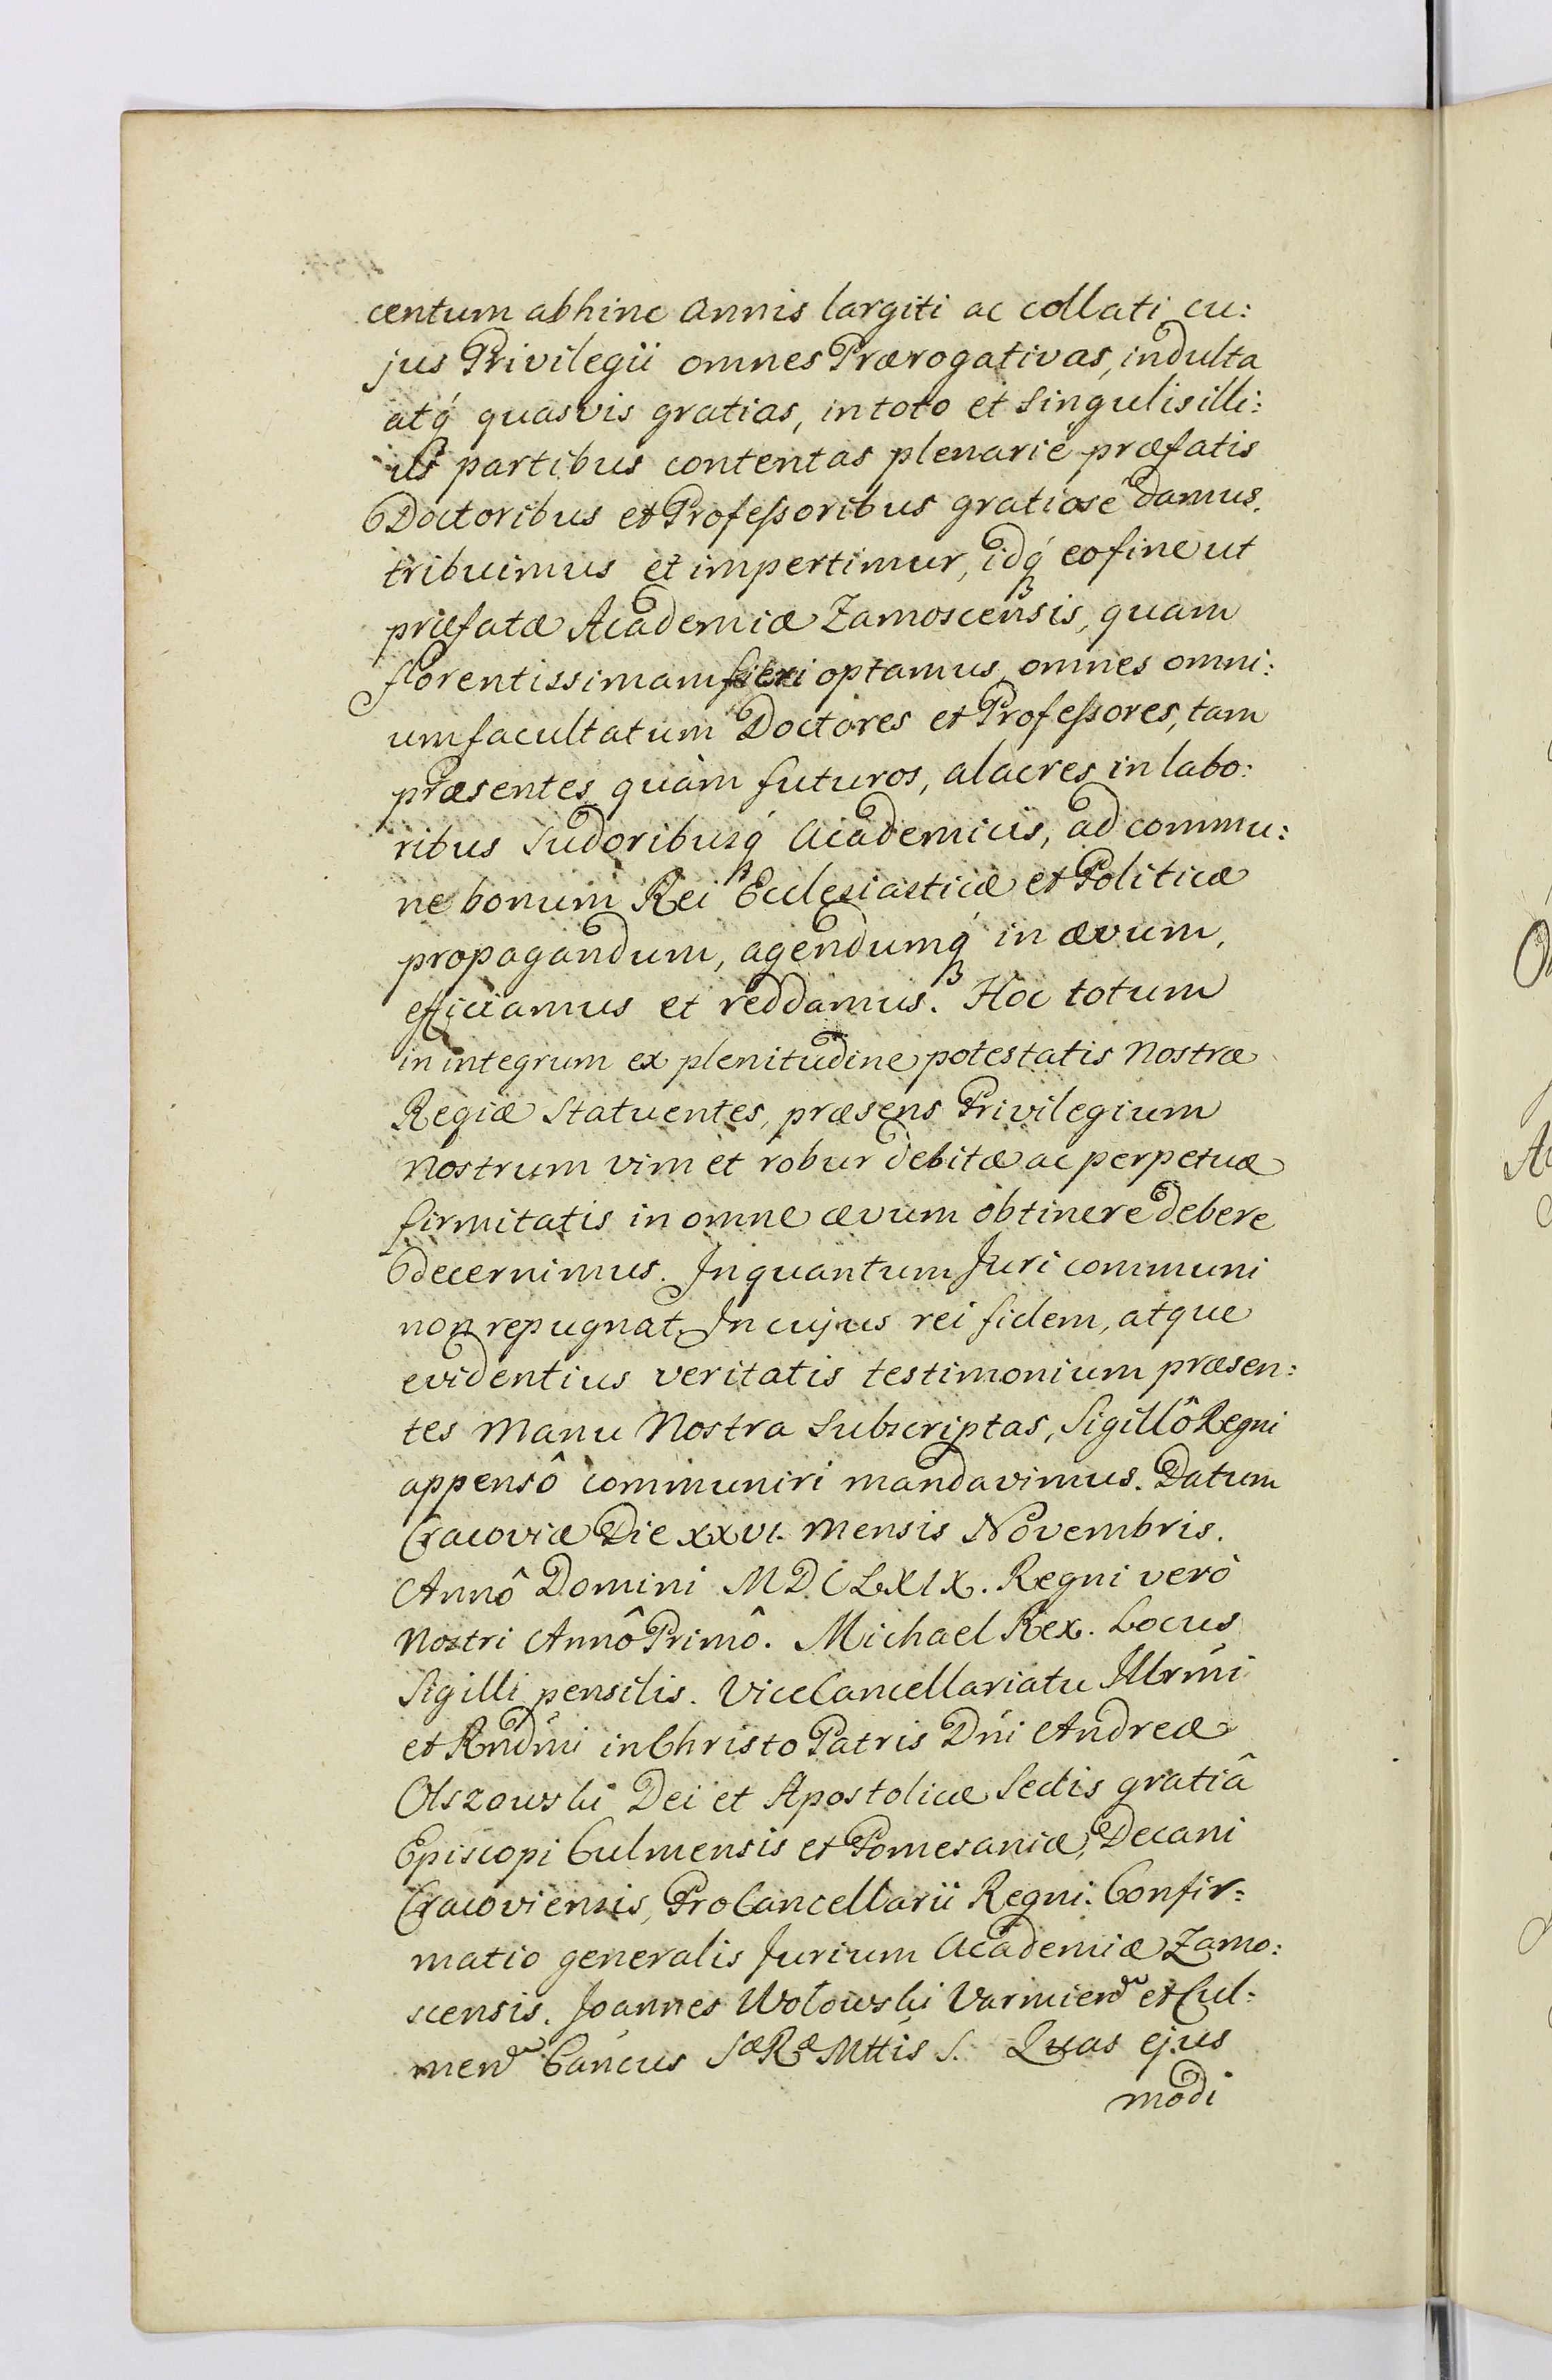 centum abhinc annis largiti ac collati cu:
jus Privilegii omnes Prærogativas, indulta
atq́ quasvis gratias, in toto et singulis illi:
us partibus contentas plenariè præfatis
Doctoribus et Profeßoribus gratiosè damus,
tribuimus et impertimur, idq́ eo fine ut
præfatæ Academiæ Zamoscensis, quam
florentissimam fieri optamus, omnes omni:
um facultatum Doctores et Profeßores, tam
præsentes quàm futuros, alacres in labo:
ribus sudoribusq́ Academicis, ad commu:
ne bonum Rei Ecclesiasticæ et Politicæ
propagandum, agendumq́ in ævum,
efficiamus et reddamus. Hoc totum
in integrum ex plenitudine potestatis Nostræ
Regiæ statuentes, præsens Privilegium
Nostrum vim et robur debitæ ac perpetuæ
firmitatis in omne ævum obtinere debere
decernimus. Inquantum Juri communi
non repugnat, In cujus rei fidem, atque
evidentius veritatis testimonium præsen:
tes Manu Nostra subscriptas, Sigillô Regni
appensô communiri mandavimus. Datum
Cracoviæ Die XXVI. Mensis Novembris.
Annô Domini MDCLXIX. Regni verò
Nostri Annô Primô. Michael Rex. Locus
Sigilli pensilis. ViceCancellariatu Illrmi
et Rndmi in Christo Patris Dni Andreæ
Olszowski Dei et Apostolicæ Sedis gratiâ
Episcopi Culmensis et Pomesaniæ, Decani
Cracoviensis, ProCancellarii Regni. Confir:
matio generalis Jurium Academiæ Zamo:
scensis. Joannes Wołowski Varmien et Cul:
men Cancus Sæ Ræ Mttis S. Quas ejus
modi